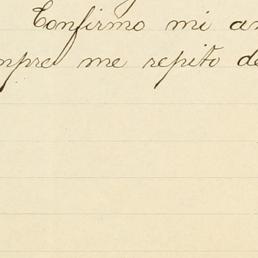 Confirmo mi an
mpre me repito de